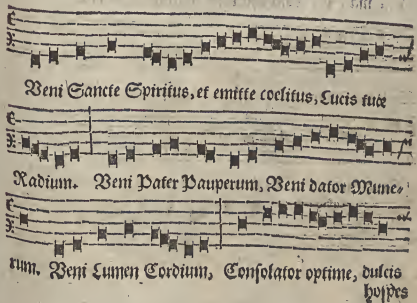 Veni Sancte Spiritus, et emitte coelitus, Lucis tuæ
Radium. Veni Pater Pauperum, Veni dator Mune⸗
rum. Veni Lumen Cordium, Consolator optime, dulcis
hospes